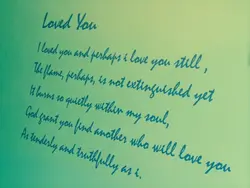 Loved You
I loved you and perhaps i love you still,
The flame, perhaps, is not extinguished yet
It burns so quietly within my soul,
God grant you find another who will love you
As tenderly and truthfully as i.